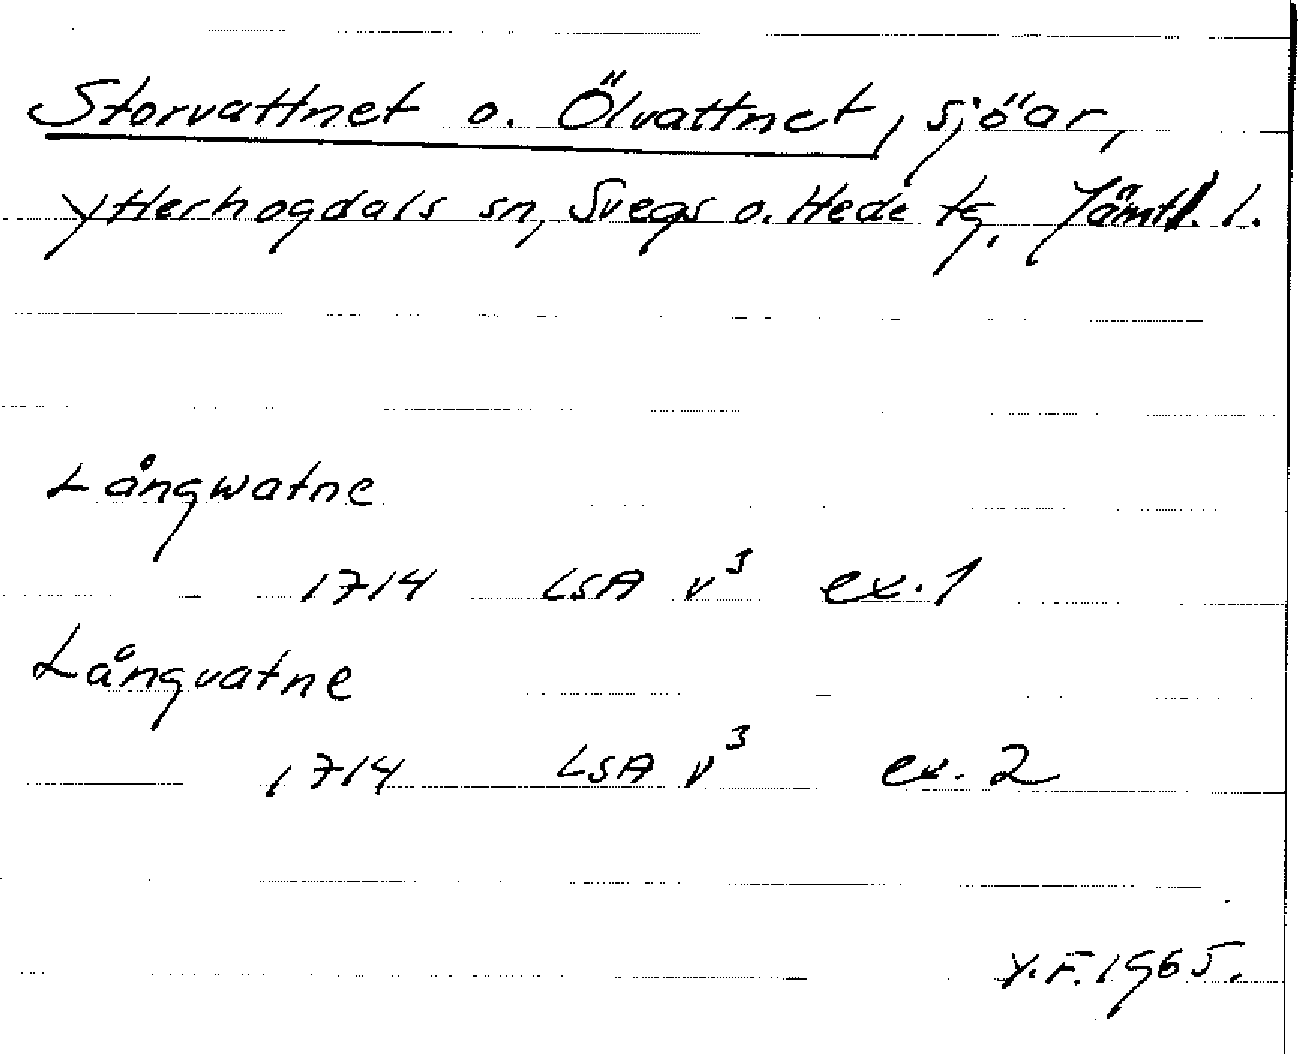 Storvattnet o. Ölvattnet, sjöar,
Ytterhogdals sn, Svegs o. Hede tg, Jämtl. l.
Långwatne
1714 LSA v³ ex. 1
Långvatne
1714 LSA v³ ex. 2
Y.F. 1965.